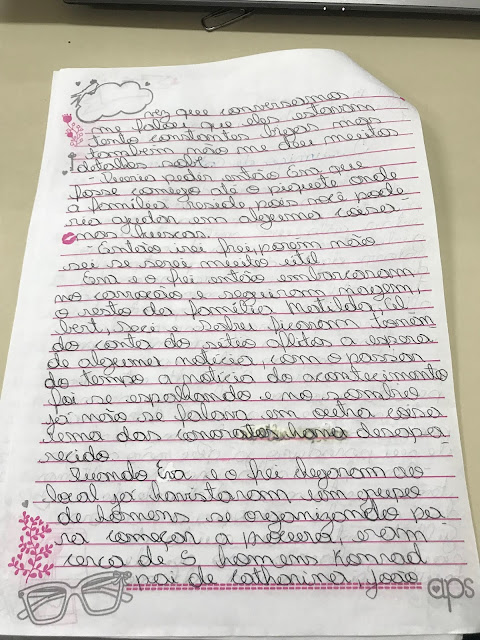 vez que conversamos
me falou que eles estavam
tento constantes brigas mas
tambem não me deu muitos
detalhes sobre.
- Queria pedir então Eva que
fosse comigo até o piquete onde
a familia reside pois você pode
ria ajudar em alguma coisa
nas buscas.
- Então irei frei, porem não
sei se serei muito util.
Eva e o frei então embarcaram
no carroção e seguiram viagem,
o resto da familia Matilda, Al
bert, Seci e ficaram toman
do conta do sitio aflitos a espera
de alguma noticia, com o passar
do tempo a noticia do acontecimento
foi se espalhando e no sambio
já não se falava em outra coisa
uma das havia desapa-
recido.
Quando Eva e o frei chegaram ao
local ja havistaram um grupo
de homens se organizando pa-
ra começar a procura, eram
cerca de 5 homens Konrad
pai de Catharina, João
aps